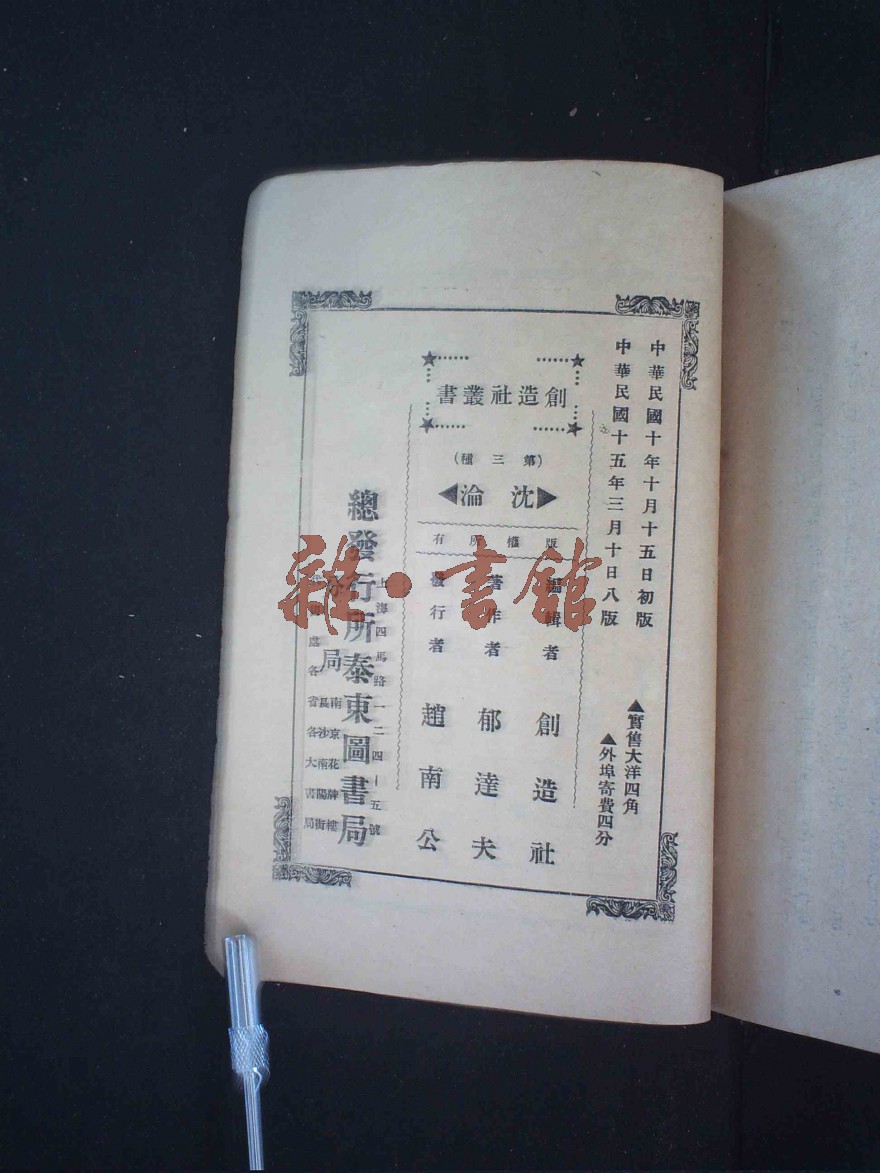 中華民國十年十月十五日初版
中華民國十五年三月十日八版
▲實售大洋四角
▲外埠寄費四分
創造社叢書
(第三種)
沈淪
版權所有
編輯者 創造社
著作者 郁達夫
發行者 趙南公
上海四馬路一二四—五號
總發行所泰東圖書局
分局
南京花牌樓
長沙南陽街
各省各大書局
雜·書館